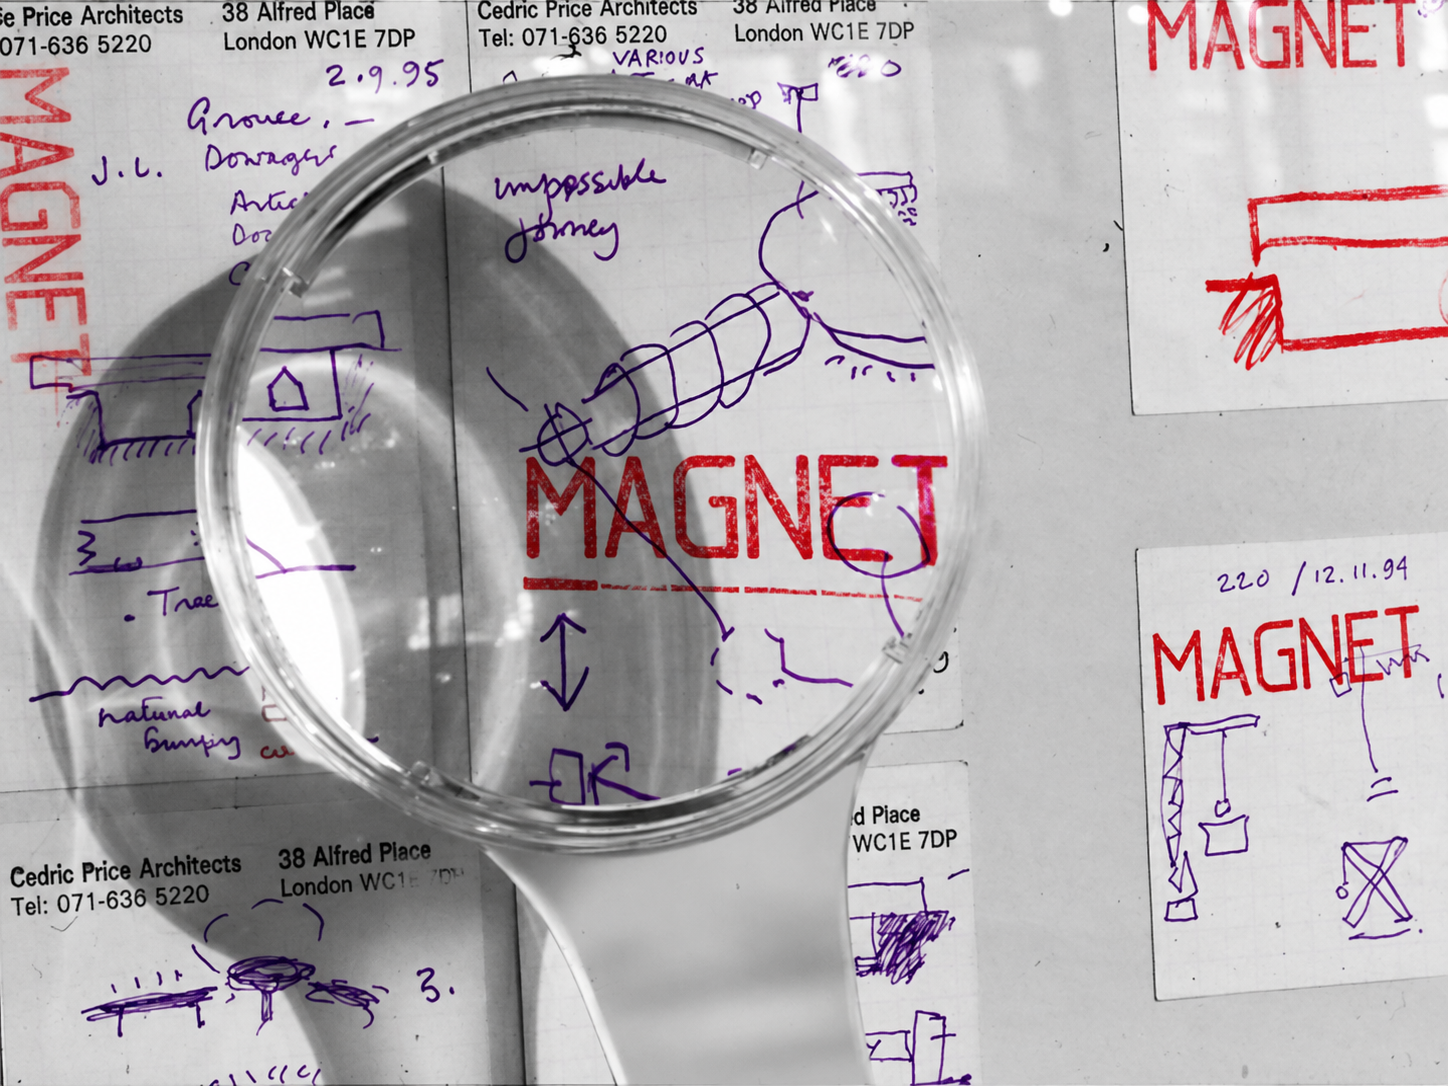 Cedric Price Architects
38 Alfred Place
071-636 5220
London WC1E 7DP
2.9.95
MAGNET
J.L.
Dowagers
natural
bumping
Cedric Price Architects
38 Alfred Place
Tel: 071-636 5220
London WC1E 7DP
VARIOUS
impossible
jorney
MAGNET
MAGNET
220 / 12.11.94
MAGNET
Cedric Price Architects
38 Alfred Place
Tel: 071-636 5220
London WC1E 7DP
3.
Place
WC1E 7DP